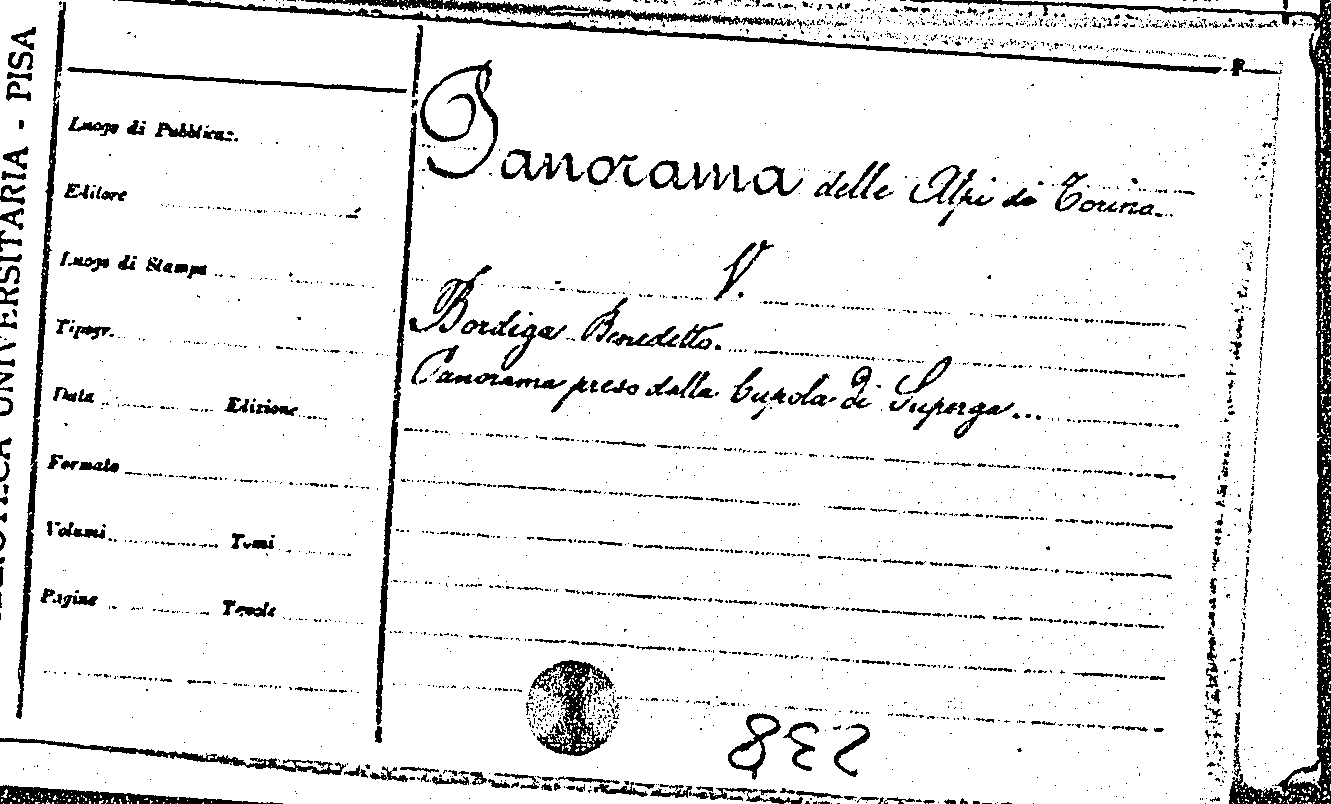 UNIVERSITARIA - PISA
Luogo di Pubblicaz.
Editore
Luogo di Stampa
Tipogr.
Data Edizione
Formato
Volumi Tomi
Pagine Tavole
Panorama delle Alpi da Torino.
V.
Bordiga Benedetto.
Panorama preso dalla Cupola di Superga...
238